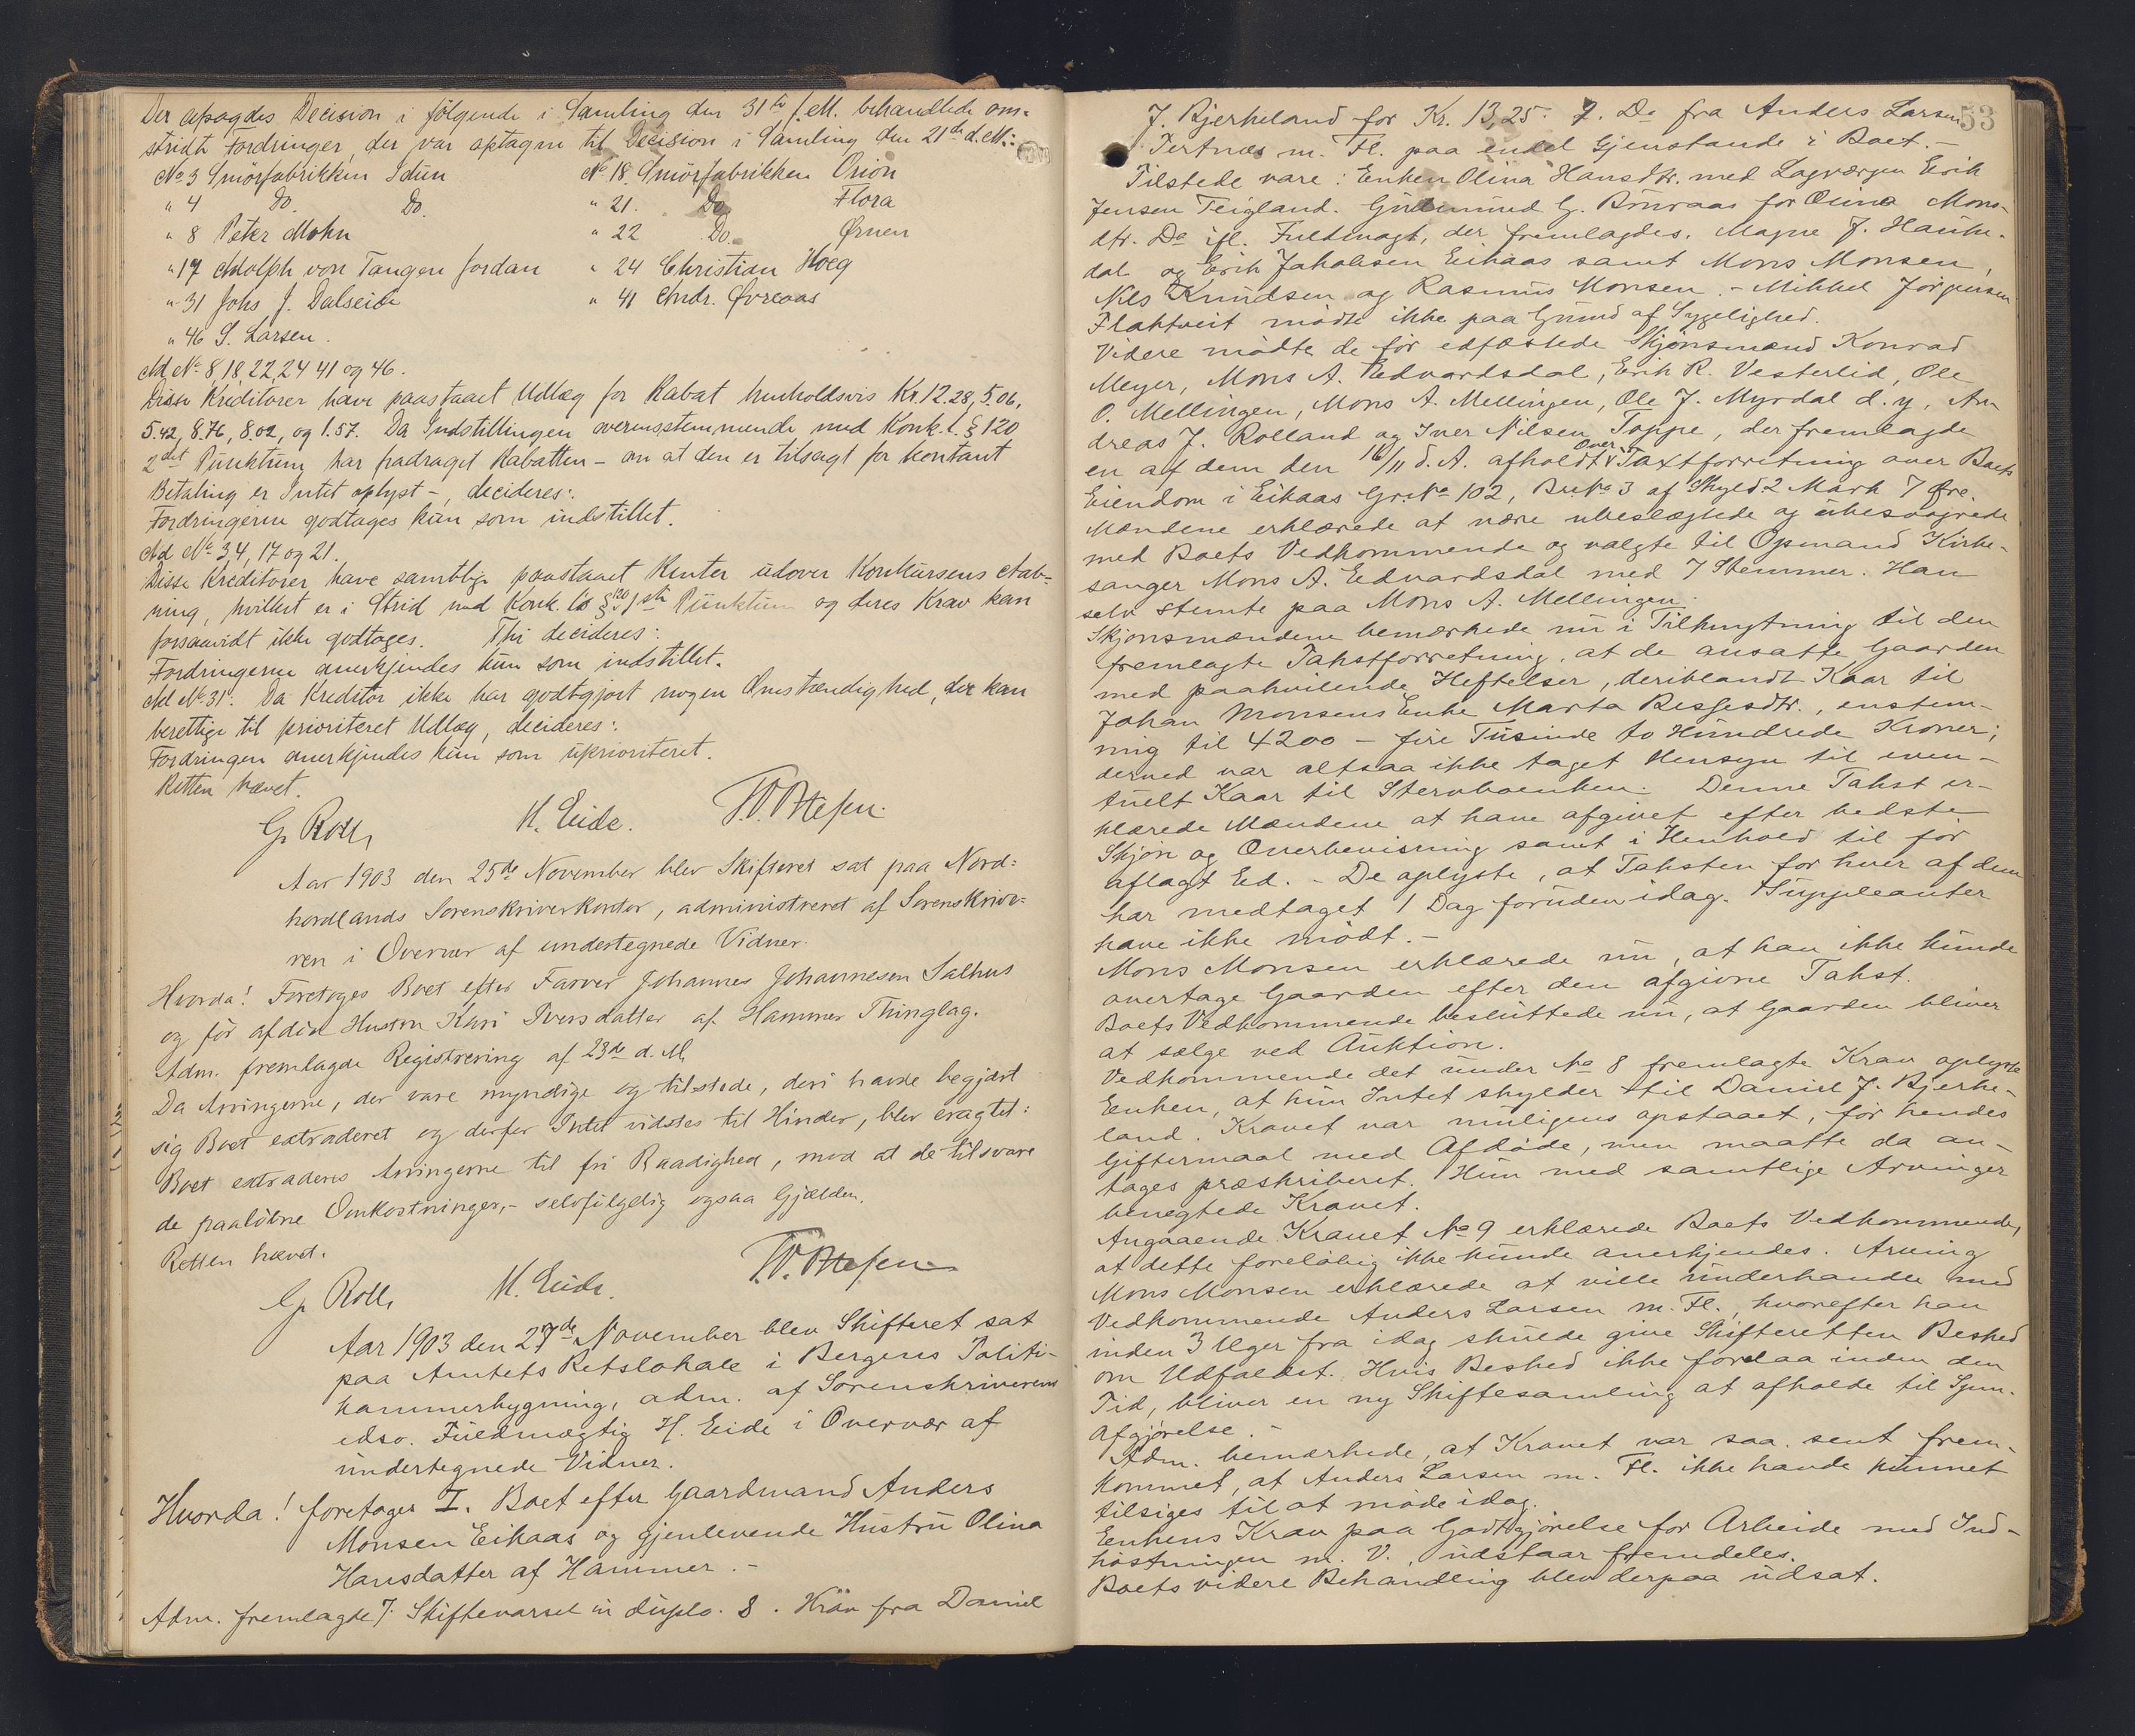 Der afsagdes Decision i følgende i Samling den 31te f. M. behandlede om-
stridte Fordringer, der var optagne til Decision i Samling den 21de d. M.:
No 3 Smörfabrikken Idun
" 4 Do. Do.
" 8 Peter Mohn
" 17 Adolph von Tangen Jordan
" 31 Johs J. Dalseide
" 46 S. Larsen.
No 18. Smörfabrikken Orion
" 21. Do. Flora
" 22 Do. Ørnen
" 24 Christian Hoeg
" 41 Andr. Øvreaas
Ad No 8 18, 22, 24 41 og 46.
Disse Kreditorer have paastaaet Udlæg for Rabat henholdsvis Kr. 12.28, 5.06,
5.42, 8.76, 8.02, og 1.57. Da Indstillingen overensstemmende med Konk. l. § 120
2det Punktum har fradraget Rabatten – om at den er tilsagt for kontant
Betaling er Intet oplyst –, decideres:
Fordringerne godtages kun som indstillet.
Ad No 3 4, 17 og 21.
Disse Kreditorer have samtlige paastaaet Renter udover Konkursens Aab-
ning, hvilket er i Strid med Konk. l's § 120 1ste Punktum og deres Krav kan
forsaavidt ikke godtages. Thi decideres:
Fordringerne anerkjendes kun som indstillet.
Ad No 31. Da Kreditor ikke har godtgjort nogen Omstændighed, der kan
berettige til prioriteret Udlæg, decideres:
Fordringen anerkjendes kun som uprioriteret.
Retten hævet.
G. Roll, H. Eide.
Aar 1903 den 25de November blev Skifteret sat paa Nord-
hordlands Sorenskriverkontor, administreret af Sorenskrive-
ren i Overvær af undertegnede Vidner.
Hvorda! Foretoges Boet efter Farver Johannes Johannesen Salhus
og før afdød Hustru Kari Iversdatter af Hammer Thinglag.
Adm. fremlagde Registrering af 23de d. M.
Da Arvingerne, der vare myndige og tilstede, deri havde begjært
sig Boet extraderet og derfor Intet vidstes til Hinder, blev eragtet:
Boet extraderes Arvingerne til fri Raadighed, mod at de tilsvare
de paaløbne Omkostninger, – selvfølgelig ogsaa Gjælden.
Retten hævet.
G. Roll, H. Eide.
Aar 1903 den 27de November blev Skifteret sat
paa Amtets Retslokale i Bergens Politi-
kammerbygning, adm. af Sorenskriverens
edsv. Fuldmægtig H. Eide i Overvær af
undertegnede Vidner.
Hvorda! foretoges I. Boet efter Gaardmand Anders
Monsen Eikaas og gjenlevende Hustru Olina
Hansdatter af Hammer. –
Adm. fremlagde 7. Skiftevarsel in duplo. 8. Krav fra Daniel
53
J. Bjerkeland for Kr. 13,25. 9. Do fra Anders Larsen
Tertnæs m. Fl. paa endel Gjenstande i Boet. –
Tilstede vare: Enken Olina Hansdtr. med Lagværgen Erik
Jensen Teigland. Gudmund G. Brüraas for Olina Mons-
dtr. Do ifl. Fuldmagt, der fremlagdes. Magne J. Hauke-
dal og Erik Jakobsen Eikaas samt Mons Monsen,
Nils Knudsen og Rasmus Monsen. – Mikkel Jørgensen
Flaktveit mödte ikke paa Grund af Sygelighed.
Videre mödte de för edfæstede Skjönsmænd Konrad
Meyer, Mons A. Edvardsdal, Erik R. Vesterlid, Ole
O. Mellingen, Mons A. Mellingen, Ole J. Myrdal d. y., An-
dreas J. Rolland og Iver Nilsen Toppe, der fremlagde
en af dem den 16/11 d. A. afholdt Over Taxtforretning over Boets
Eiendom i Eikaas Gr. No 102, Br. No 3 af Skyld 2 Mark 7 Øre.
Mændene erklærede at være ubeslægtede og ubesvogrede
med Boets Vedkommende og valgte til Opmand Kirke-
sanger Mons A. Edvardsdal med 7 Stemmer. Han
selv stemte paa Mons A. Mellingen.
Skjønsmændene bemærkede nu i Tilknytning til den
fremlagte Takstforretning, at de ansatte Gaarden
med paahvilende Heftelser, deriblandt Kaar til
Johan Monsens Enke Marta Besgesdtr., enstem-
mig til 4200 – fire Tusinde to Hundrede Kroner;
derved var altsaa ikke taget Hensyn til even-
tuelt Kaar til Stervboenken. Denne Takst er-
klærede Mændene at have afgivet efter bedste
Skjøn og Overbevisning samt i Henhold til før
aflagt Ed. – De oplyste, at Taksten for hver af dem
har medtaget 1 Dag foruden idag. Suppleanter
have ikke mödt. –
Mons Monsen erklærede nu, at han ikke kunde
overtage Gaarden efter den afgivne Takst.
Boets Vedkommende besluttede nu, at Gaarden bliver
at sælge ved Auktion.
Vedkommende det under No 8 fremlagte Krav oplyste
Enken, at hun Intet skylder til Daniel J. Bjerke-
land. Kravet var muligens opstaaet, før hendes
Giftermaal med Afdøde, men maatte da an-
tages præskriberet. Hun med samtlige Arvinger
benegtede Kravet.
Angaaende Kravet No 9 erklærede Boets Vedkommende,
at dette foreløbig ikke kunde anerkjendes. Arving
Mons Monsen erklærede at ville underhandle med
Vedkommende Anders Larsen m. Fl., hvorefter han
inden 3 Uger fra idag skulde give Skifteretten Besked
om Udfaldet. Hvis Besked ikke forelaa inden den
Tid, bliver en ny Skiftesamling at afholde til Spm.
Afgjørelse. –
Adm. bemærkede, at Kravet var saa sent frem-
kommet, at Anders Larsen m. Fl. ikke havde kunnet
tilsiges til at møde idag.
Enkens Krav paa Godtgjørelse for Arbeide med Ind-
høstningen m. V., udstaar fremdeles.
Boets videre Behandling blev derpaa udsat.